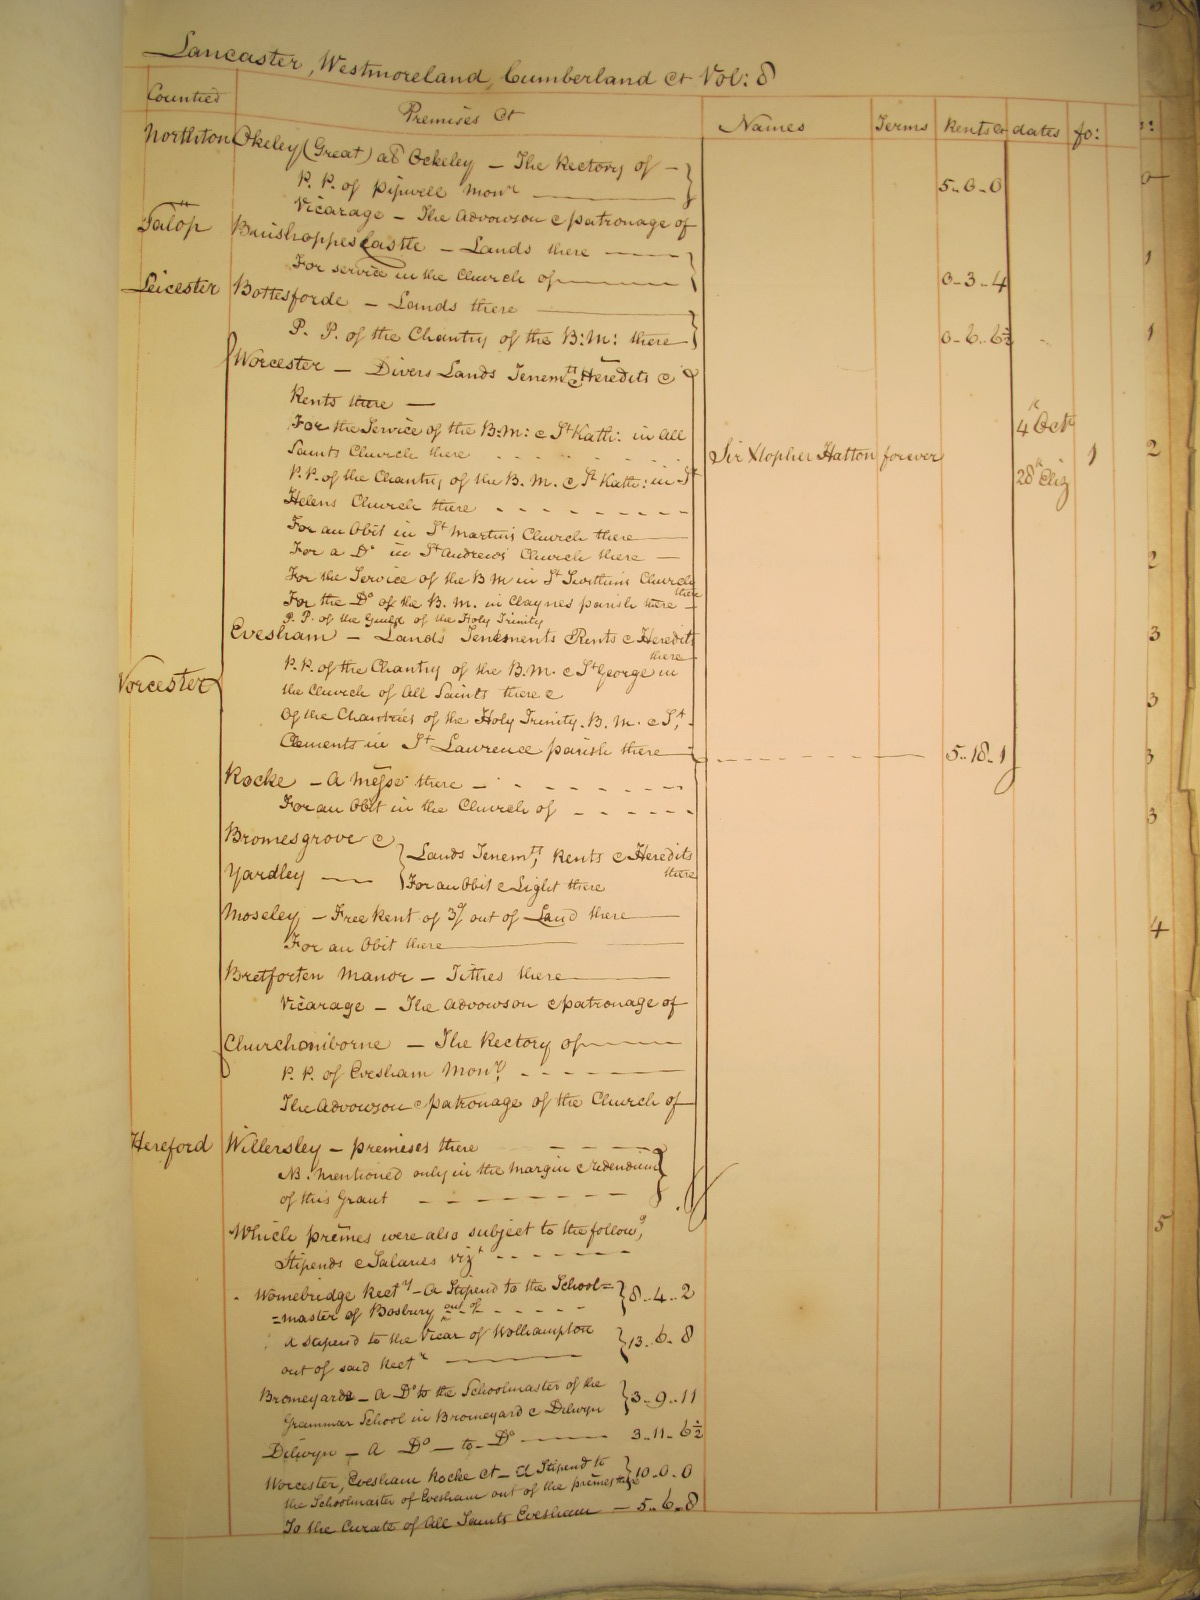 Lancaster, Westmoreland, Cumberland &c Vol: 8
Counties Premises &c Names Terms Rents &c dates fo:
Northton Okeley (Great) als Ockeley — The Rectory of —
P. P. of Pipwell Mony 5..0..0
Vicarage — The Advowson & patronage of
Salop Bushoppes Castle — Lands there
For service in the Church of 0..3..4
Leicester Bottesforde — Lands there
P. P. of the Chantry of the B: M: there 0..6..6½
Worcester — Divers Lands Tenemts & Heredits &
Rents there —
For the Service of the B: M: & St Kath: in All
Saints Church there
P. P. of the Chantry of the B. M. & St Kath: in St
Helens Church there
Sir Xtopher Hatton forever 4th Octr 28th Eliz 1
For an Obit in St Martins Church there
For a Do in St Andrews Church there —
For the Service of the B M in St Swithins Church there
For the Do of the B. M. in Claynes parish there —
P. P. of the Guild of the Holy Trinity
Evesham — Lands Tenements Rents & Heredits there
P. P. of the Chantry of the B. M. & St George in
Worcester
the Church of All Saints there &
Of the Chantries of the Holy Trinity. B. M. & St
Clements in St Lawrence parish there 5..18..1
Rocke — A Messe there —
For an Obit in the Church of
Bromesgrove &
Yardley — Lands Tenemts, Rents & Heredits there
For an Obit & Light there
Moseley — Free Rent of 3/ out of Land there
For an Obit there
Bretforten Manor — Tithes there
Vicarage — The Advowson & patronage of
Churchoniborne — The Rectory of
P. P. of Evesham Mony
The Advowson & patronage of the Church of
Hereford Willersley — premises there
NB. Mentioned only in the Margin & redendum
of this Grant
Which premes were also subject to the followg
Stipends & Salaries vizt
Womebridge Recty — A Stipend to the School=
=master of Bosbury out of 8..4..2
A stipend to the Vicar of Wolhampton
out of said Recty 13..6..8
Bromeyarde — A Do to the Schoolmaster of the
Grammar School in Bromeyard & Dilwyn 3..9..11
Dilwyn — A Do — to — Do 3..11..6½
Worcester, Evesham Rocke &c — A Stipend to
the Schoolmaster of Evesham out of the premes there 10..0..0
To the Curate of All Saints Evesham — 5..6..8